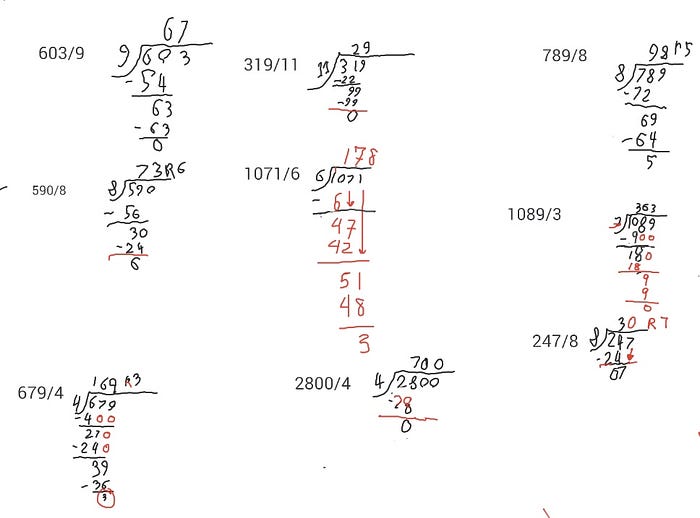 603/9
67
9 603
- 54
63
- 63
0
319/11
29
11 319
- 22
99
- 99
0
789/8
98 r5
8 789
- 72
69
- 64
5
590/8
73R6
8 590
- 56
30
- 24
6
1071/6
178
6 1071
- 6
47
42
51
48
3
1089/3
363
3 1089
- 900
180
18
9
9
0
679/4
169 R3
4 679
- 400
270
- 240
39
- 36
3
2800/4
700
4 2800
- 28
0
247/8
30 R7
8 247
- 24
07